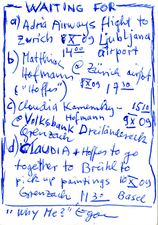 WAITING FOR
a) Adria Airways flight to
Zurich 8 X 09 Ljubljana
14 00 airport
b) Matthias
Hofmann @ Zürich airport
("Hoffer") 8 X 09 17 30
c) Claudia Kamensky - 15 10
@ Volksbank Hofmann 9 X 09
Grenzach Dreiländereck
d) CLAUDIA + Hoffer to go
together to Brühl to
pick up paintings 10 X 09
Grenzach 11 30 Basel
"Why Me?" Egon